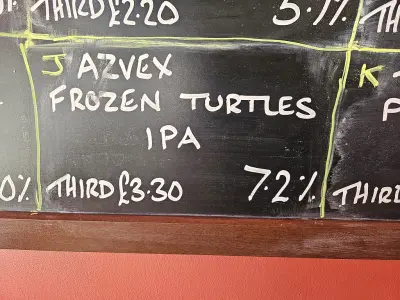 THIRD £2.20 5.1% TH
J AZVEX K
FROZEN TURTLES
IPA
0% THIRD £3.30 7.2% THIRD